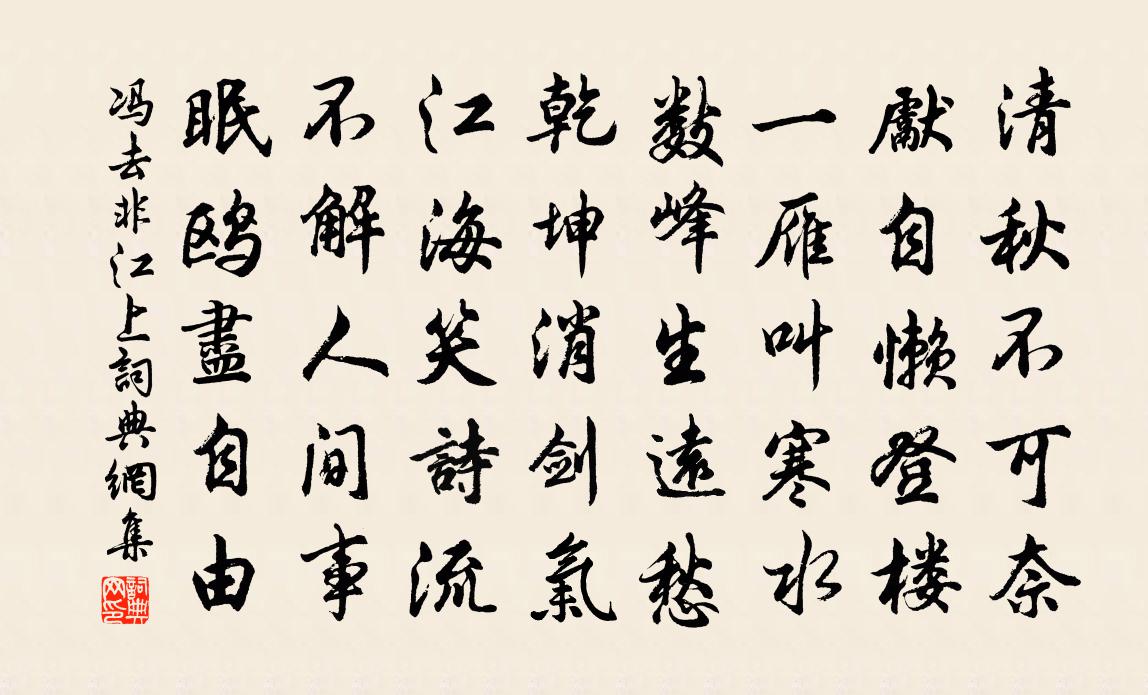 清秋不可奈
獻自懒登楼
一雁叫寒水
数峰生遠愁
乾坤消剑氣
江海笑詩流
不解人间事
眠鸥盡自由
冯去非江上詞典網集
詞典网印